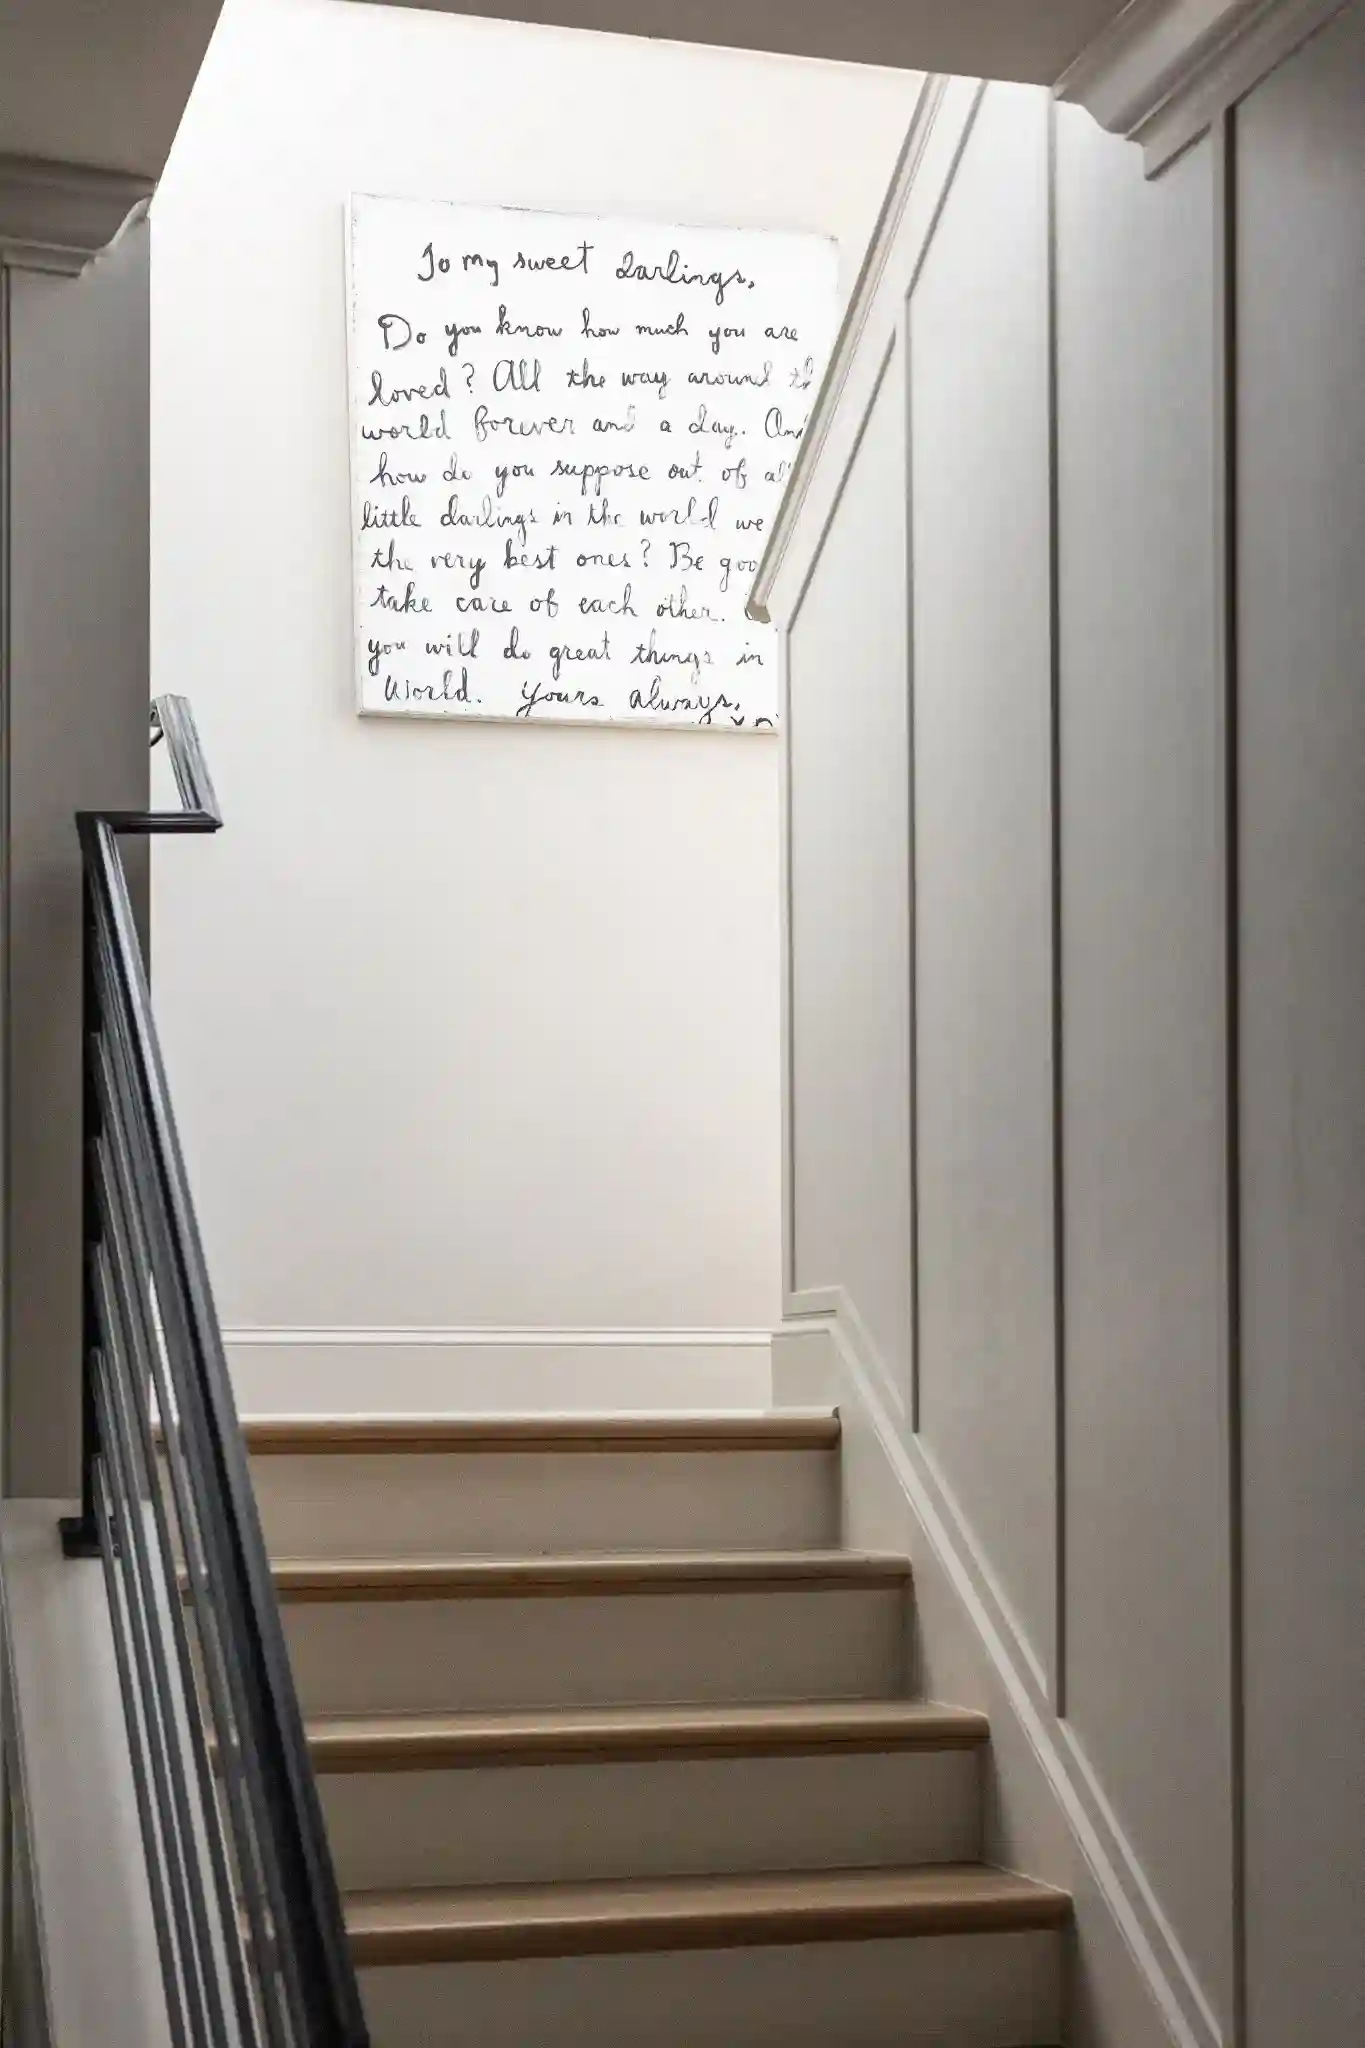 To my sweet darlings,
Do you know how much you are
loved? All the way around
world forever and a day. And
how do you suppose out of
little darlings in the world we
the very best ones? Be
take care of each other.
you will do great things in
World. Yours always,